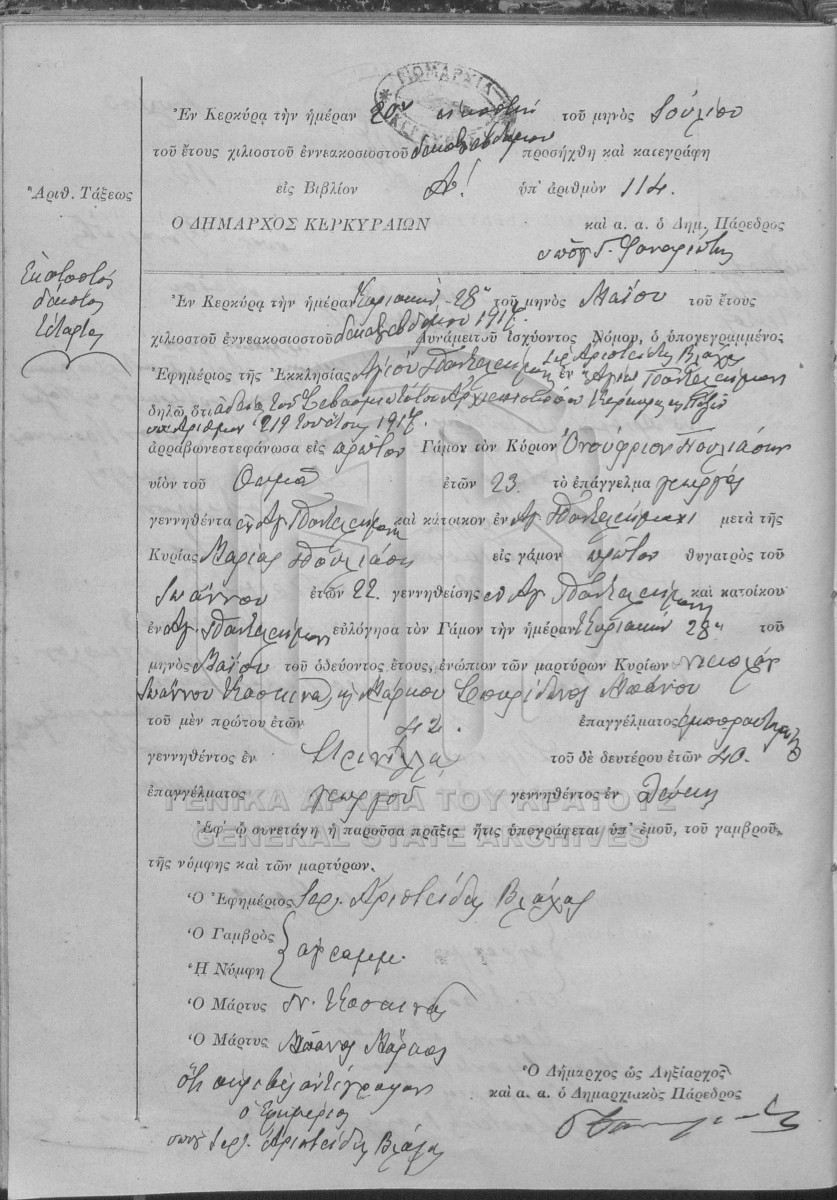 ΔΗΜΑΡΧΙΑ
ΚΕΡΚΥΡΑΙΩΝ
Ἐν Κερκύρᾳ τὴν ἡμέραν 20ην εἰκοστὴν τοῦ μηνὸς Ἰουλίου
τοῦ ἔτους χιλιοστοῦ ἐννεακοσιοστοῦ δεκάτου ἑβδόμου προσήχθη καὶ κατεγράφη
εἰς Βιβλίον Α! ὑπ' ἀριθμὸν 114.
Ἀριθ. Τάξεως
Ο ΔΗΜΑΡΧΟΣ ΚΕΡΚΥΡΑΙΩΝ καὶ α. α. ὁ Δημ. Πάρεδρος
Γ.
Ἑκατοστὸς
δέκατος
τέταρτος
Ἐν Κερκύρᾳ τὴν ἡμέραν Κυριακὴν 28ην τοῦ μηνὸς Μαΐου τοῦ ἔτους
χιλιοστοῦ ἐννεακοσιοστοῦ δεκάτου ἑβδόμου 1917. Δυνάμει τοῦ ἰσχύοντος Νόμου, ὁ ὑπογεγραμμένος
Ἱερ. Ἀριστείδης Βλάχος
Ἐφημέριος τῆς Ἐκκλησίας Ἁγίου Παντελεήμονος ἐν Ἁγίῳ Παντελεήμονι
δηλῶ, ὅτι ἀδείᾳ τοῦ Σεβασμιωτάτου Ἀρχιεπισκόπου Κερκύρας καὶ Παξῶν
ὑπ' ἀριθμὸν 219 1917.
ἀρραβωνεστεφάνωσα εἰς πρῶτον Γάμον τὸν Κύριον Ὀνούφριον Πουλιάσην
υἱὸν τοῦ Θωμᾶ ἐτῶν 23. τὸ ἐπάγγελμα γεωργός
γεννηθέντα ἐν Ἁγ. Παντελεήμονι καὶ κάτοικον ἐν Ἁγ. Παντελεήμονι μετὰ τῆς
Κυρίας Μαρίας Πουλιάση εἰς γάμον πρῶτον θυγατρὸς τοῦ
Ἰωάννου ἐτῶν 22. γεννηθείσης ἐν Ἁγ. Παντελεήμονι καὶ κατοίκου
ἐν Ἁγ. Παντελεήμονι εὐλόγησα τὸν Γάμον τὴν ἡμέραν Κυριακὴν 28ην τοῦ
μηνὸς Μαΐου τοῦ ὁδεύοντος ἔτους, ἐνώπιον τῶν μαρτύρων Κυρίων Νικολάου
Ἰωάννου Κασκινᾶ, καὶ Μάρκου Σπυρίδωνος Μπάνου
τοῦ μὲν πρώτου ἐτῶν 42. ἐπαγγέλματος
γεννηθέντος ἐν Στρινύλλᾳ τοῦ δὲ δευτέρου ἐτῶν 40.
ἐπαγγέλματος γεωργοῦ γεννηθέντος ἐν
ΓΕΝΙΚΑ ΑΡΧΕΙΑ ΤΟΥ ΚΡΑΤΟΥΣ
GENERAL STATE ARCHIVES
Ἐφ' ᾧ συνετάγη ἡ παροῦσα πρᾶξις ἥτις ὑπογράφεται ὑπ' ἐμοῦ, τοῦ γαμβροῦ,
τῆς νύμφης καὶ τῶν μαρτύρων.
Ὁ Ἐφημέριος Ἱερ. Ἀριστείδης Βλάχος
Ὁ Γαμβρὸς
ἀγράμμ.
Ἡ Νύμφη
Ὁ Μάρτυς Ν. Κασκινᾶς
Ὁ Μάρτυς Μπάνος Μάρκος
Ὅτι ἀκριβὲς ἀντίγραφον
ὁ Ἐφημέριος
Ἱερ. Ἀριστείδης Βλάχος
Ὁ Δήμαρχος ὡς Ληξίαρχος
καὶ α. α. ὁ Δημαρχιακὸς Πάρεδρος